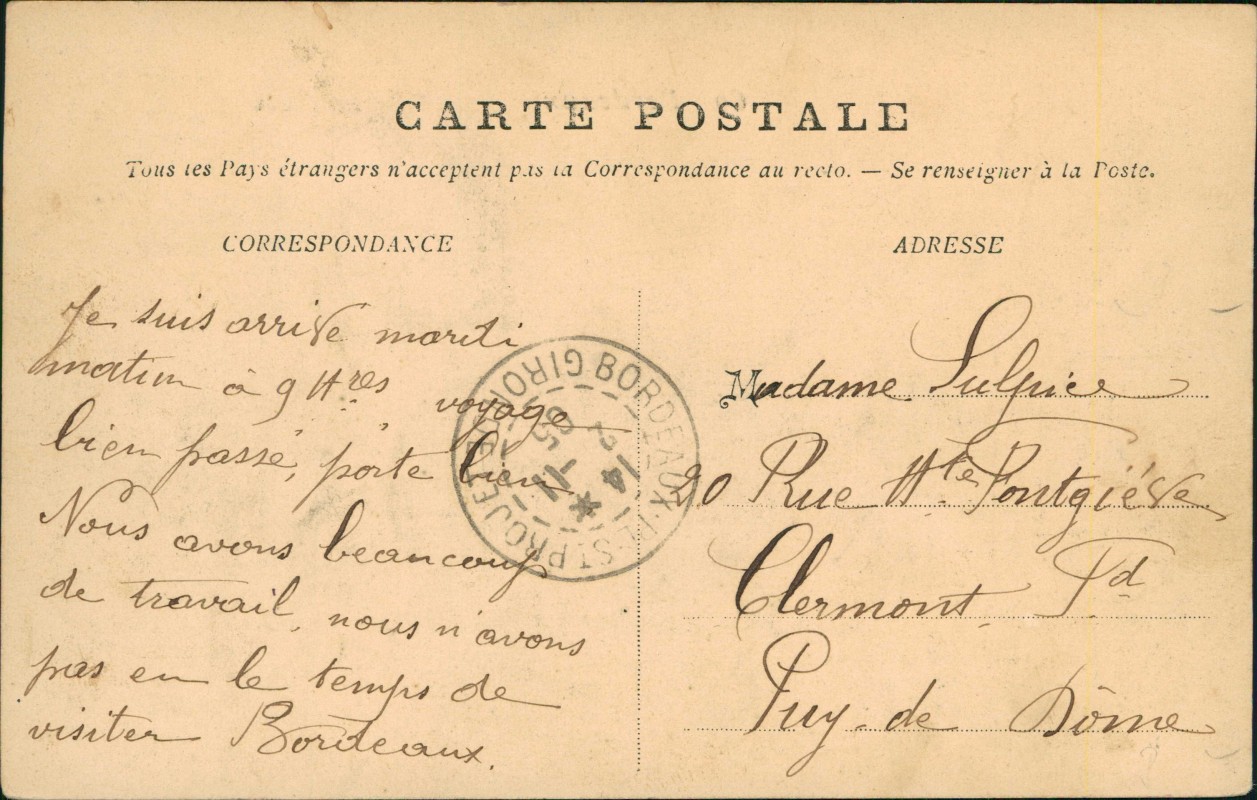 CARTE POSTALE
Tous les Pays étrangers n'acceptent pas la Correspondance au recto. — Se renseigner à la Poste.
CORRESPONDANCE
Je suis arrivé mardi
matin à 9 Hres voyage
bien passé, porte bien
Nous avons beaucoup
de travail, nous n'avons
pas eu le temps de
visiter Bordeaux.
ADRESSE
Madame Sulpice
20 Rue Hte Fontgiéve
Clermont Fd
Puy-de Dôme
BORDEAUX St PROJET GIRONDE
14
2
05